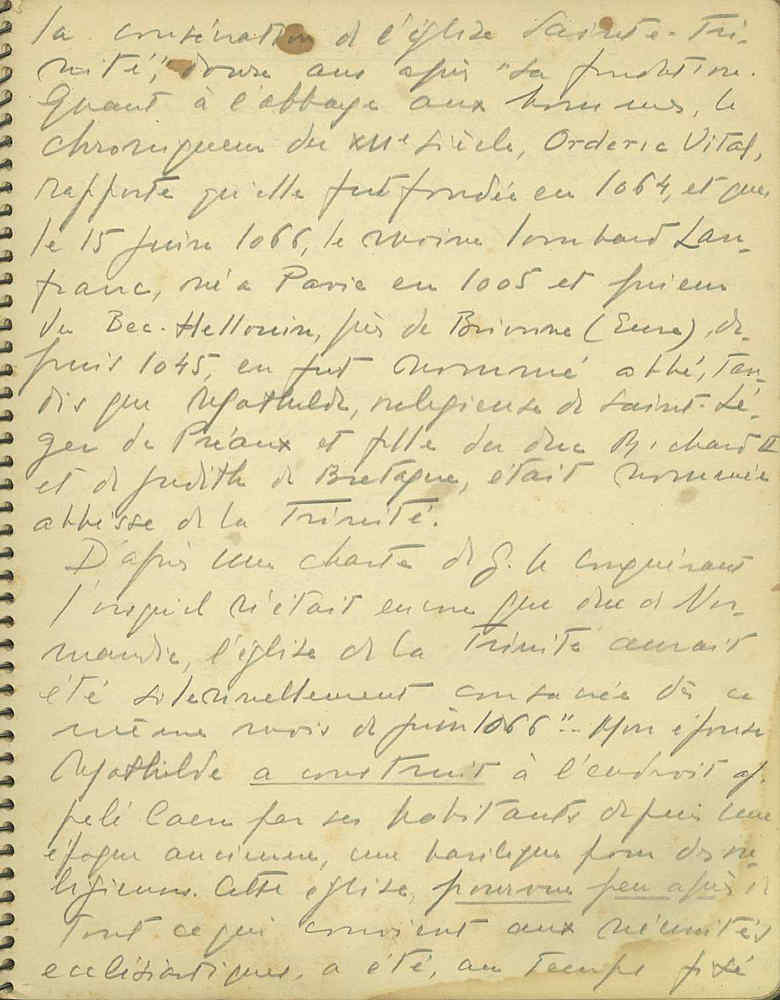 la consécration de l'église Sainte-Tri-
nité", douze ans après "sa fondation.
Quant à l'abbaye aux hommes, le
chroniqueur du XIIe siècle, Orderic Vital,
rapporte qu'elle fut fondée en 1064, et que
le 15 juin 1066, le moine lombard Lan-
franc, né à Pavie en 1005 et prieur
du Bec-Hellouin, près de Brionne (Eure), de-
puis 1045, en fut nommé abbé, tan-
dis que Mathilde, religieuse de Saint-Lé-
ger de Préaux et fille du duc Richard II
et de Judith de Bretagne, était nommée
abbesse de la Trinité.
D'après une charte de G. le conquérant
lorsqu'il n'était encore que duc de Nor-
mandie, l'église de la Trinité aurait
été solennellement consacrée dès ce
même mois de juin 1066 "... Mon épouse
Mathilde a construit à l'endroit ap-
pelé Caen par ses habitants depuis une
époque ancienne, une basilique pour des re-
ligieuses. Cette église, pourvue peu après de
tout ce qui convient aux nécessités
ecclésiastiques, a été, au temps fixé